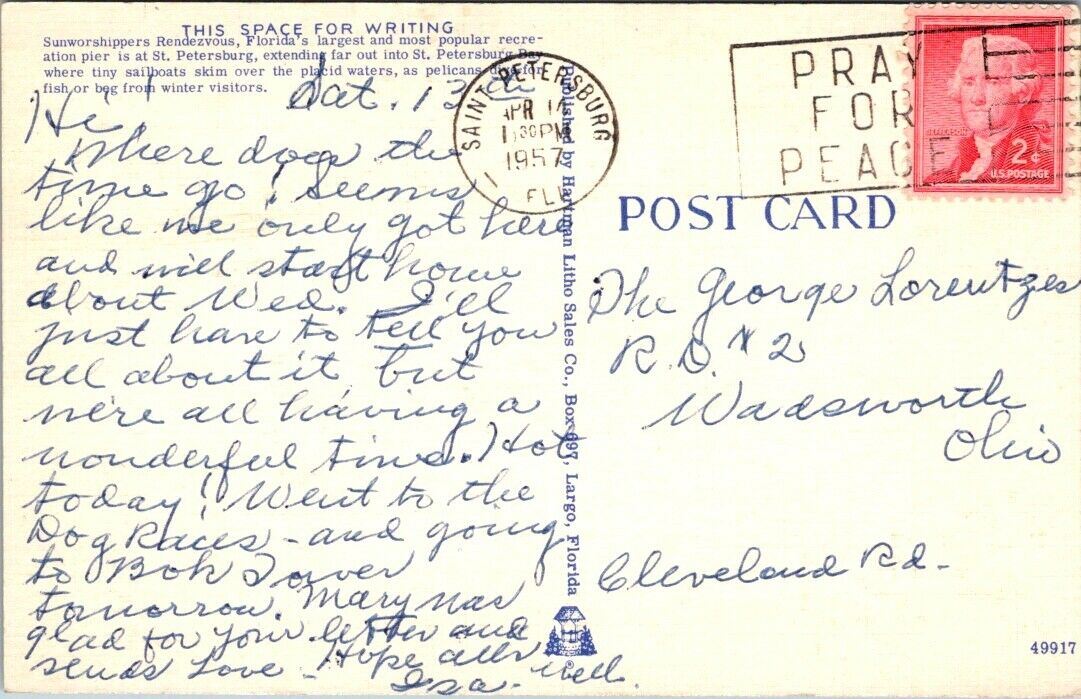 THIS SPACE FOR WRITING
Sunworshippers Rendezvous, Florida's largest and most popular recre-
ation pier is at St. Petersburg, extending far out into St. Petersburg Bay
where tiny sailboats skim over the placid waters, as pelicans dive for
fish or beg from winter visitors.
Sat. 13th
Hi!
Where does the
time go! Seems
like we only got here
and will start home
about Wed. I'll
just have to tell you
all about it, but
we're all having a
wonderful time. Hot
today! Went to the
Dog Races - and going
to Bok Tower
tomorrow. Mary was
glad for your letter and
sends love - Hope all's
well.
Iza -
Published by Hartman Litho Sales Co., Box 697, Largo, Florida
®
SAINT PETERSBURG
APR 14
30 PM
1957
FLA
PRAY
FOR
PEACE
JEFFERSON
2¢
U.S. POSTAGE
POST CARD
The George Lorentzes
R.D. #2
Wadsworth
Ohio
Cleveland Rd.
49917